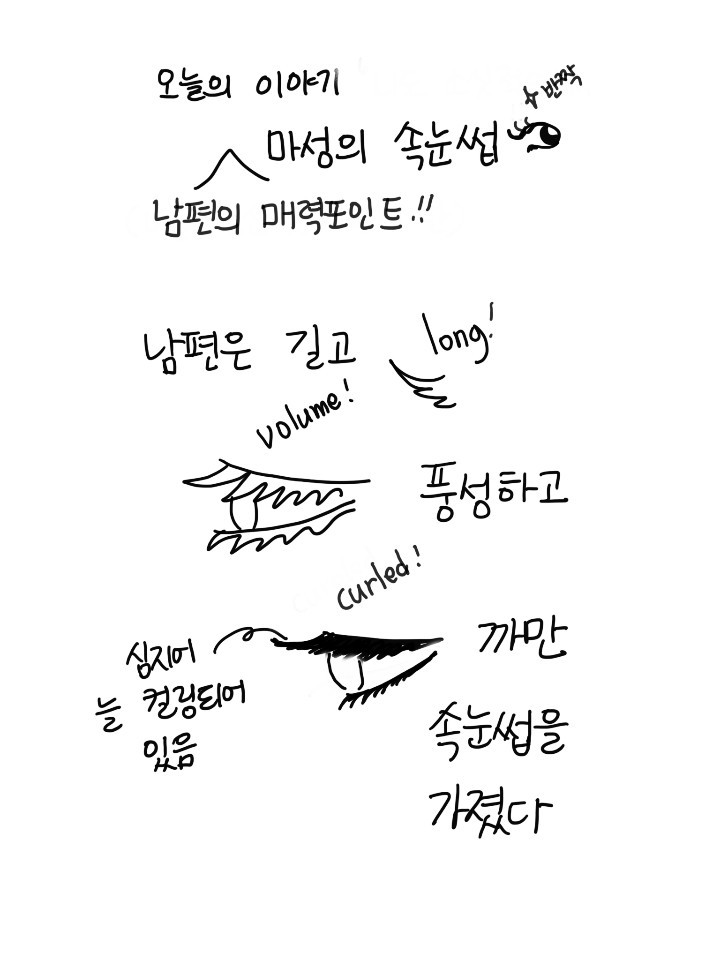 오늘의 이야기
반짝
마성의 속눈썹
남편의 매력포인트!!
남편은 길고
long!
volume!
풍성하고
curled!
까만
심지어
늘 컬링되어
있음
속눈썹을
가졌다